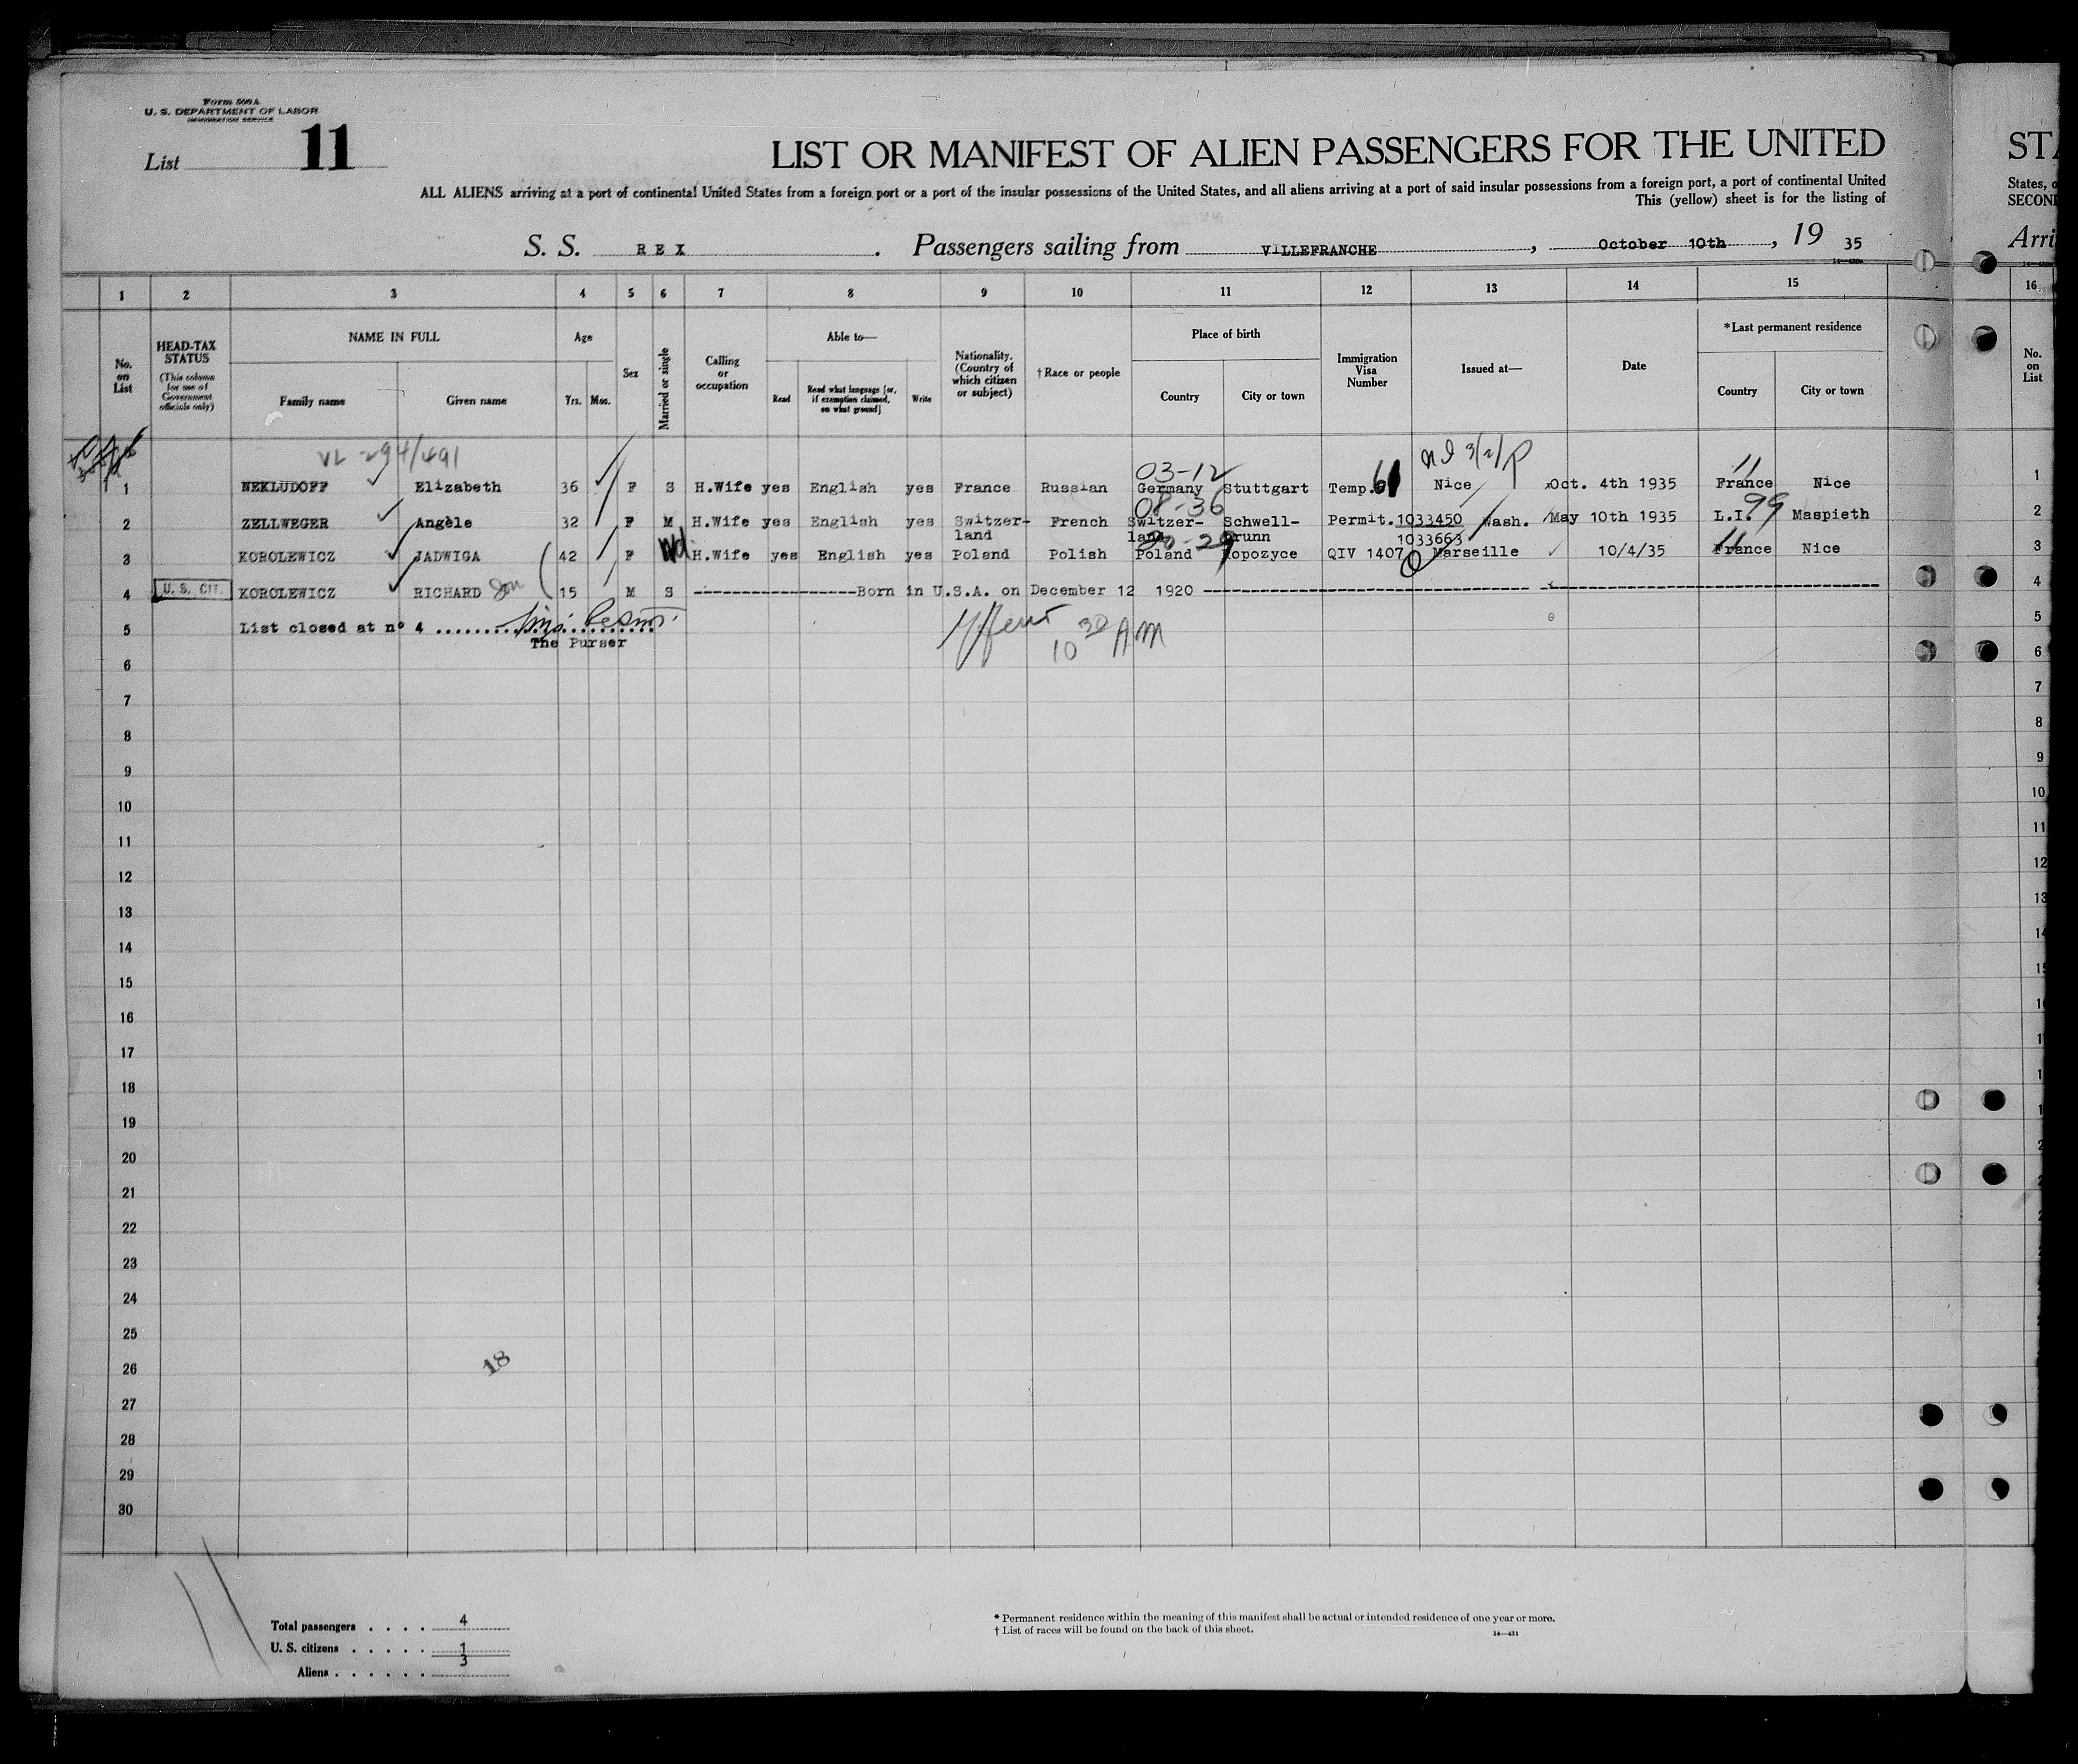 Form 500 A
U. S. DEPARTMENT OF LABOR
IMMIGRATION SERVICE
List 11
LIST OR MANIFEST OF ALIEN PASSENGERS FOR THE UNITED
ALL ALIENS arriving at a port of continental United States from a foreign port or a port of the insular possessions of the United States, and all aliens arriving at a port of said insular possessions from a foreign port, a port of continental United
This (yellow) sheet is for the listing of
S. S. REX. Passengers sailing from VILLEFRANCHE, October 10th, 19 35
STA
States, o
SECOND
Arri
1 2 3 4 5 6 7 8 9 10 11 12 13 14 15 16
No. on List
HEAD-TAX STATUS
(This column for use of Government officials only)
NAME IN FULL
Family name Given name
Age
Yrs. Mos.
Sex
Married or single
Calling or occupation
Able to—
Read
Read what language [or, if exemption claimed, on what ground]
Write
Nationality. (Country of which citizen or subject)
† Race or people
Place of birth
Country City or town
Immigration Visa Number
Issued at—
Date
*Last permanent residence
Country City or town
No. on List
VL 294/491
03-12
1 NEKLUDOFF Elizabeth 36 F S H.Wife yes English yes France Russian Germany Stuttgart Temp. 61 Nice Oct. 4th 1935 France Nice 1
08-36 99
2 ZELLWEGER Angèle 32 F M H.Wife yes English yes Switzer- French Switzer- Schwell- Permit. 1033450 Wash. May 10th 1935 L.I. Maspieth 2
land land brunn 1033663
3 KOROLEWICZ JADWIGA 42 F Wd H.Wife yes English yes Poland Polish Poland Kopozyce QIV 1407 Marseille 10/4/35 France Nice 3
4 U. S. CIT. KOROLEWICZ RICHARD Son 15 M S -----------------Born in U.S.A. on December 12 1920 ----------------- 4
5 List closed at n° 4 ....................... 5
The Purser
10 30 AM
6 6
7 7
8 8
9 9
10 10
11 11
12 12
13 13
14
15
16
17
18
19
20
21
22
23
24
25
26
18
27
28
29
30
Total passengers . . . . 4
U. S. citizens . . . . . 1
Aliens . . . . . . 3
* Permanent residence within the meaning of this manifest shall be actual or intended residence of one year or more.
† List of races will be found on the back of this sheet.
14—431